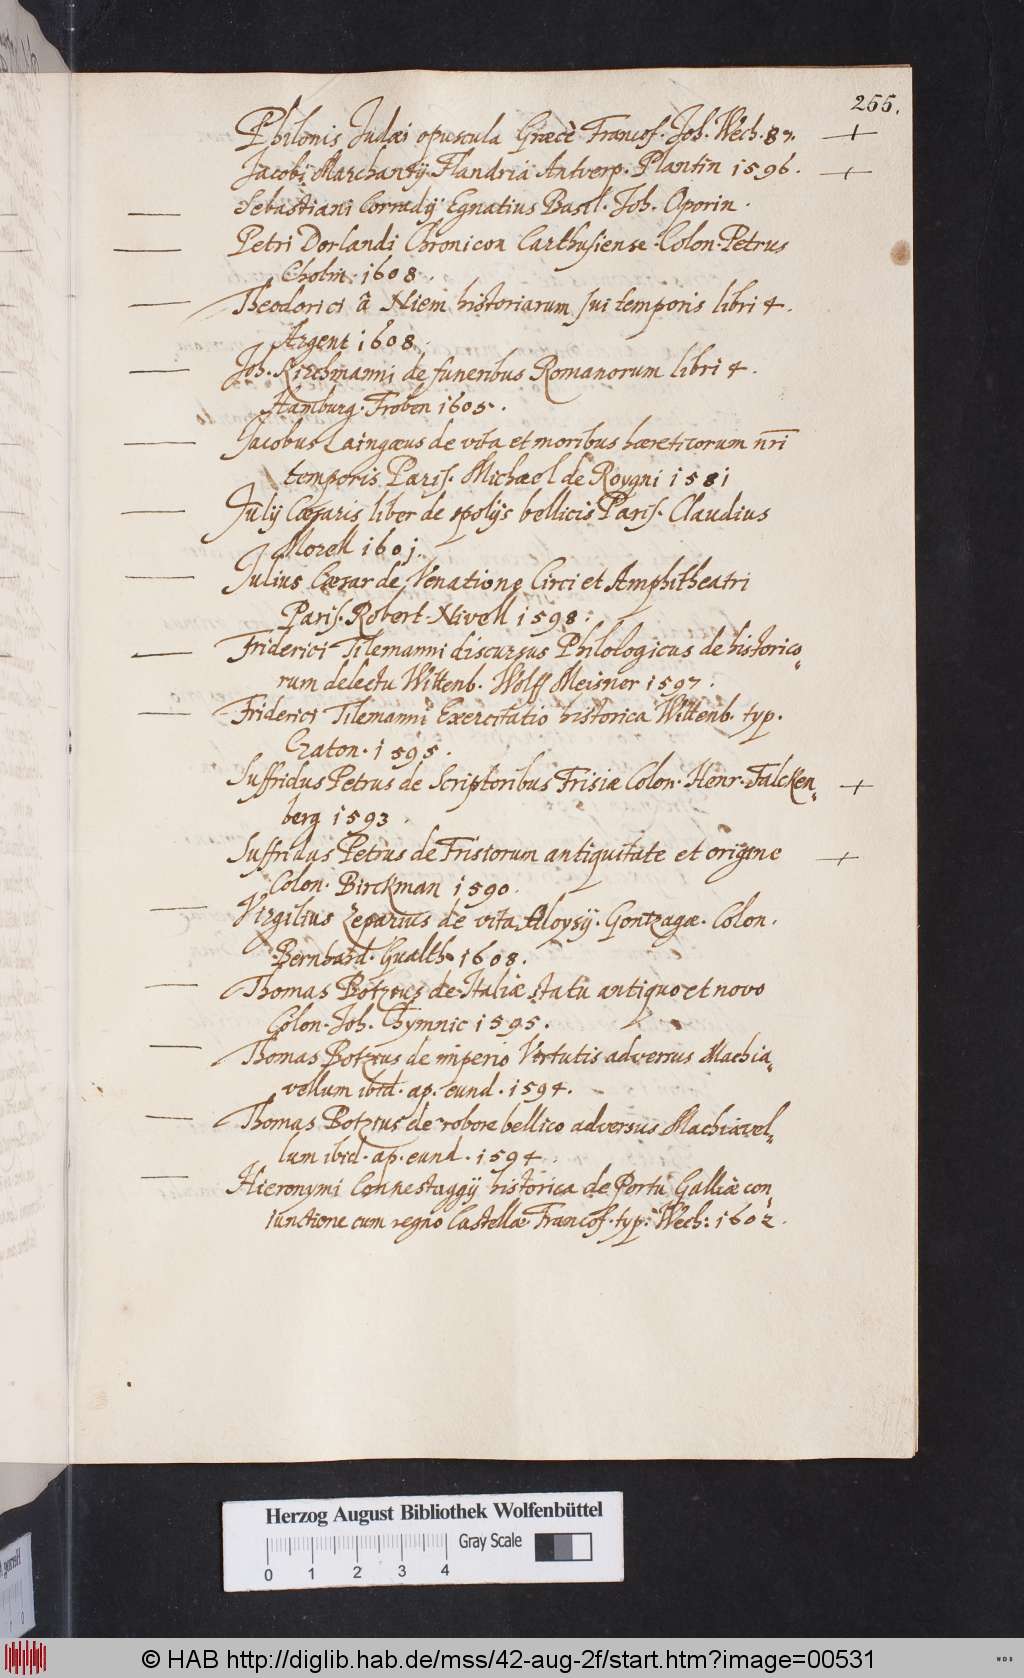 255.
Philonis Judæi opuscula Græcè Francof. Joh. Wech. 87. +
Jacobi Marchantij Flandria Antverp. Plantin 1596. +
Sebastiani Corradij Egnatius Basil. Joh. Oporin.
Petri Dorlandi Chronicon Carthusiense Colon. Petrus
Cholin. 1608.
Theodorici à Niem historiarum sui temporis libri 4.
Argent 1608.
Joh. Kirchmanni de funeribus Romanorum libri 4.
Hamburg. Froben 1605.
Jacobus Laingæus de vita et moribus hæreticorum nri
temporis Paris. Michael de Roygni 1581
Julij Cæsaris liber de spolijs bellicis Paris. Claudius
Morell 1601.
Julius Cæsar de Venatione Circi et Amphitheatri
Paris. Robert. Nivell 1598.
Friderici Tilemanni discursus Philologicus de historico-
rum delectu Wittenb. Wolff Meisner 1597.
Friderici Tilemanni Exercitatio historica Wittenb. typ.
Craton. 1595.
Suffridus Petrus de Scriptoribus Frisiæ Colon. Henr. Falcken- +
berg 1593.
Suffridus Petrus de Frisiorum antiquitate et origine +
Colon. Birckman 1590.
Virgilius Ceparius de vita Aloysij Gontzagæ. Colon.
Bernhard. Gualth. 1608.
Thomas Botzius de Italiæ statu antiquo et novo
Colon. Joh. Gymnic 1595.
Thomas Botzius de imperio Virtutis adversus Machia-
vellum ibid. ap. eund. 1594.
Thomas Botzius de robore bellico adversus Machiavel-
lum ibid. ap. eund. 1594.
Hieronymi Connestaggij historica de Portu Galliæ con-
iunctione cum regno Castellæ Francof. typ. Wech: 1602.
Herzog August Bibliothek Wolfenbüttel
Gray Scale
0 1 2 3 4
© HAB http://diglib.hab.de/mss/42-aug-2f/start.htm?image=00531